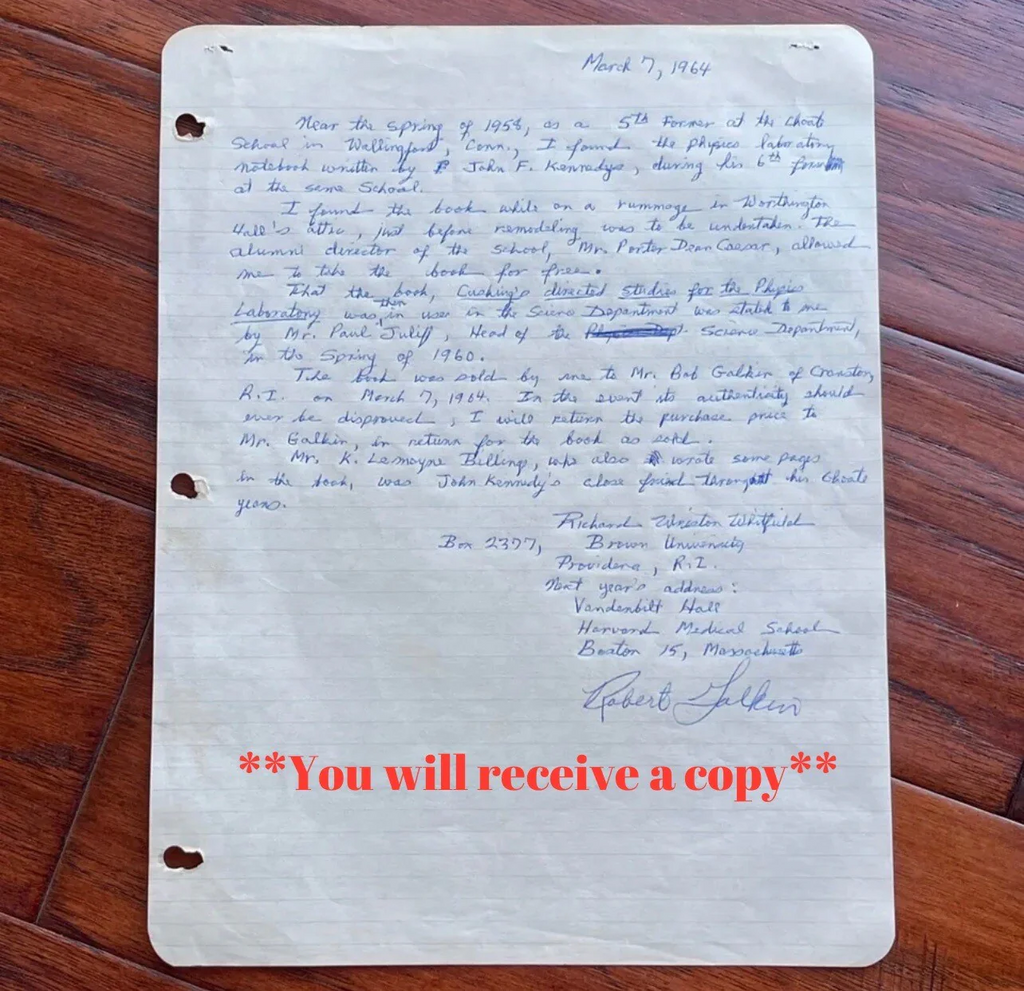 March 7, 1964
Near the spring of 1958, as a 5th Former at the Choate
School in Wallingford, Conn., I found the physics laboratory
notebook written by John F. Kennedy, during his 6th form
at the same School.
I found the book while on a rummage in Worthington
Hall's attic, just before remodeling was to be undertaken. The
alumni director of the school, Mr. Porter Dean Caesar, allowed
me to take the book for free.
That the book, Cushing's directed studies for the Physics
Laboratory was then in use in the Science Department was stated to me
by Mr. Paul Juliff, Head of the Science Department,
in the Spring of 1960.
The book was sold by me to Mr. Bob Galkin of Cranston,
R.I. on March 7, 1964. In the event its authenticity should
ever be disproved, I will return the purchase price to
Mr. Galkin, in return for the book as sold.
Mr. K. Lemoyne Billings, who also wrote some pages
in the book, was John Kennedy's close throughout his Choate
years.
Richard Winston Whitfield
Box 2377, Brown University
Providence, R.I.
Next year's address:
Vanderbilt Hall
Harvard Medical School
Boston 15, Massachusetts
Robert Galkin
**You will receive a copy**